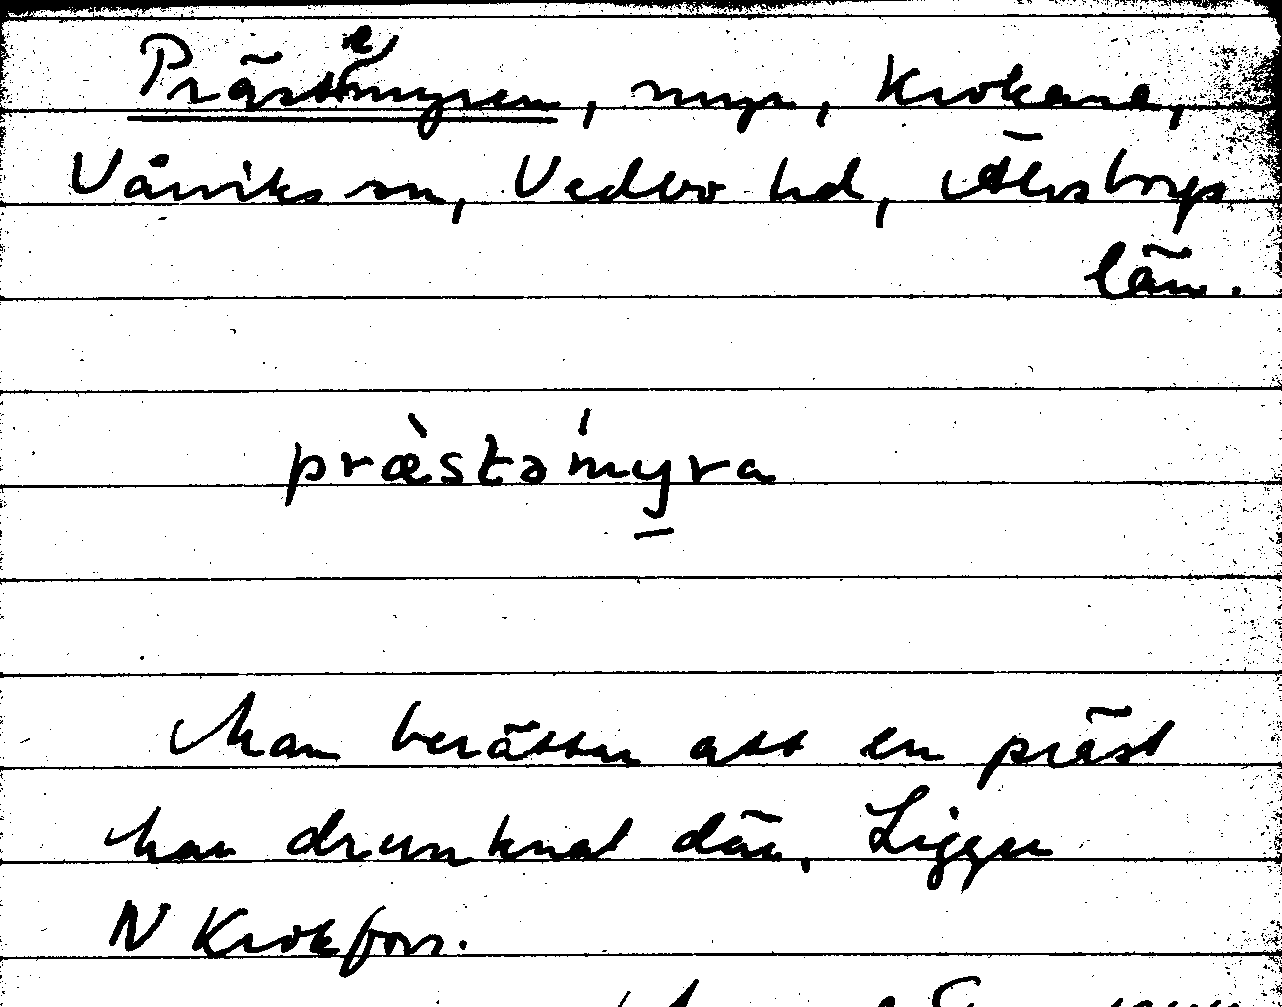 Prästemyren, myr, Krokarna,
Vårviks sn, Vedbo hd, Älvsborgs
län.
præ̀stəˈmyra
Man berättar att en präst
har drunknat där. Ligger
N Krokfors.